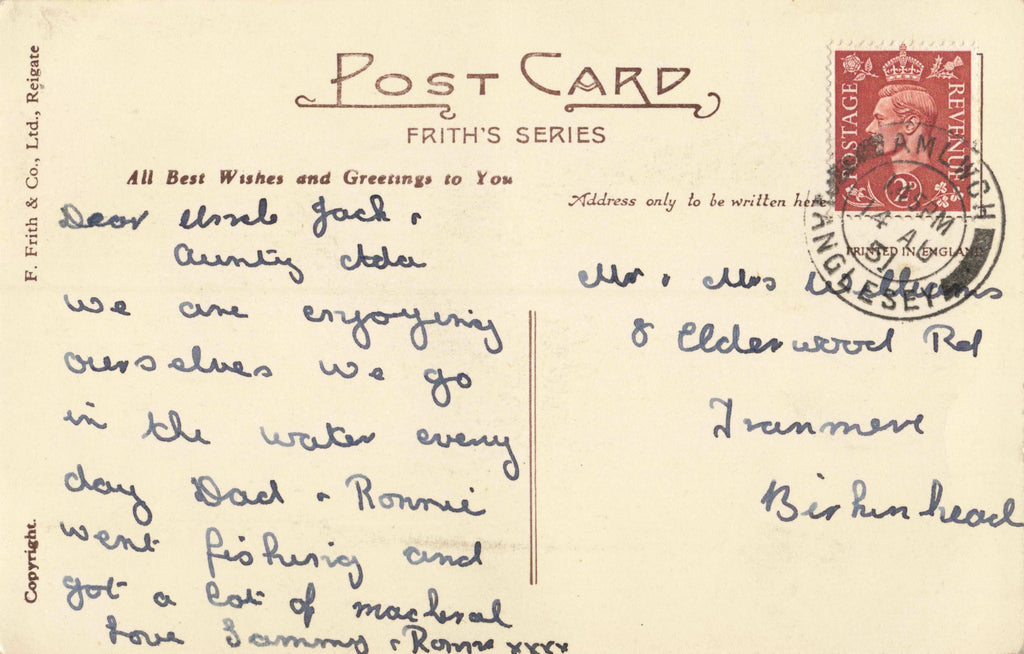 POST CARD
FRITH'S SERIES
F. Frith & Co., Ltd., Reigate
Copyright.
All Best Wishes and Greetings to You
Address only to be written here
POSTAGE REVENUE
PRINTED IN ENGLAND
14 AU
51
ANGLESEY
Dear Uncle Jack &
Aunty Ada
we are enjoying
ourselves we go
in the water every
day Dad & Ronnie
went fishing and
got a lot of macheral
Love Sammy & Ronnie xxxx
Mr & Mrs Williams
8 Elderwood Rd
Tranmere
Birkenhead